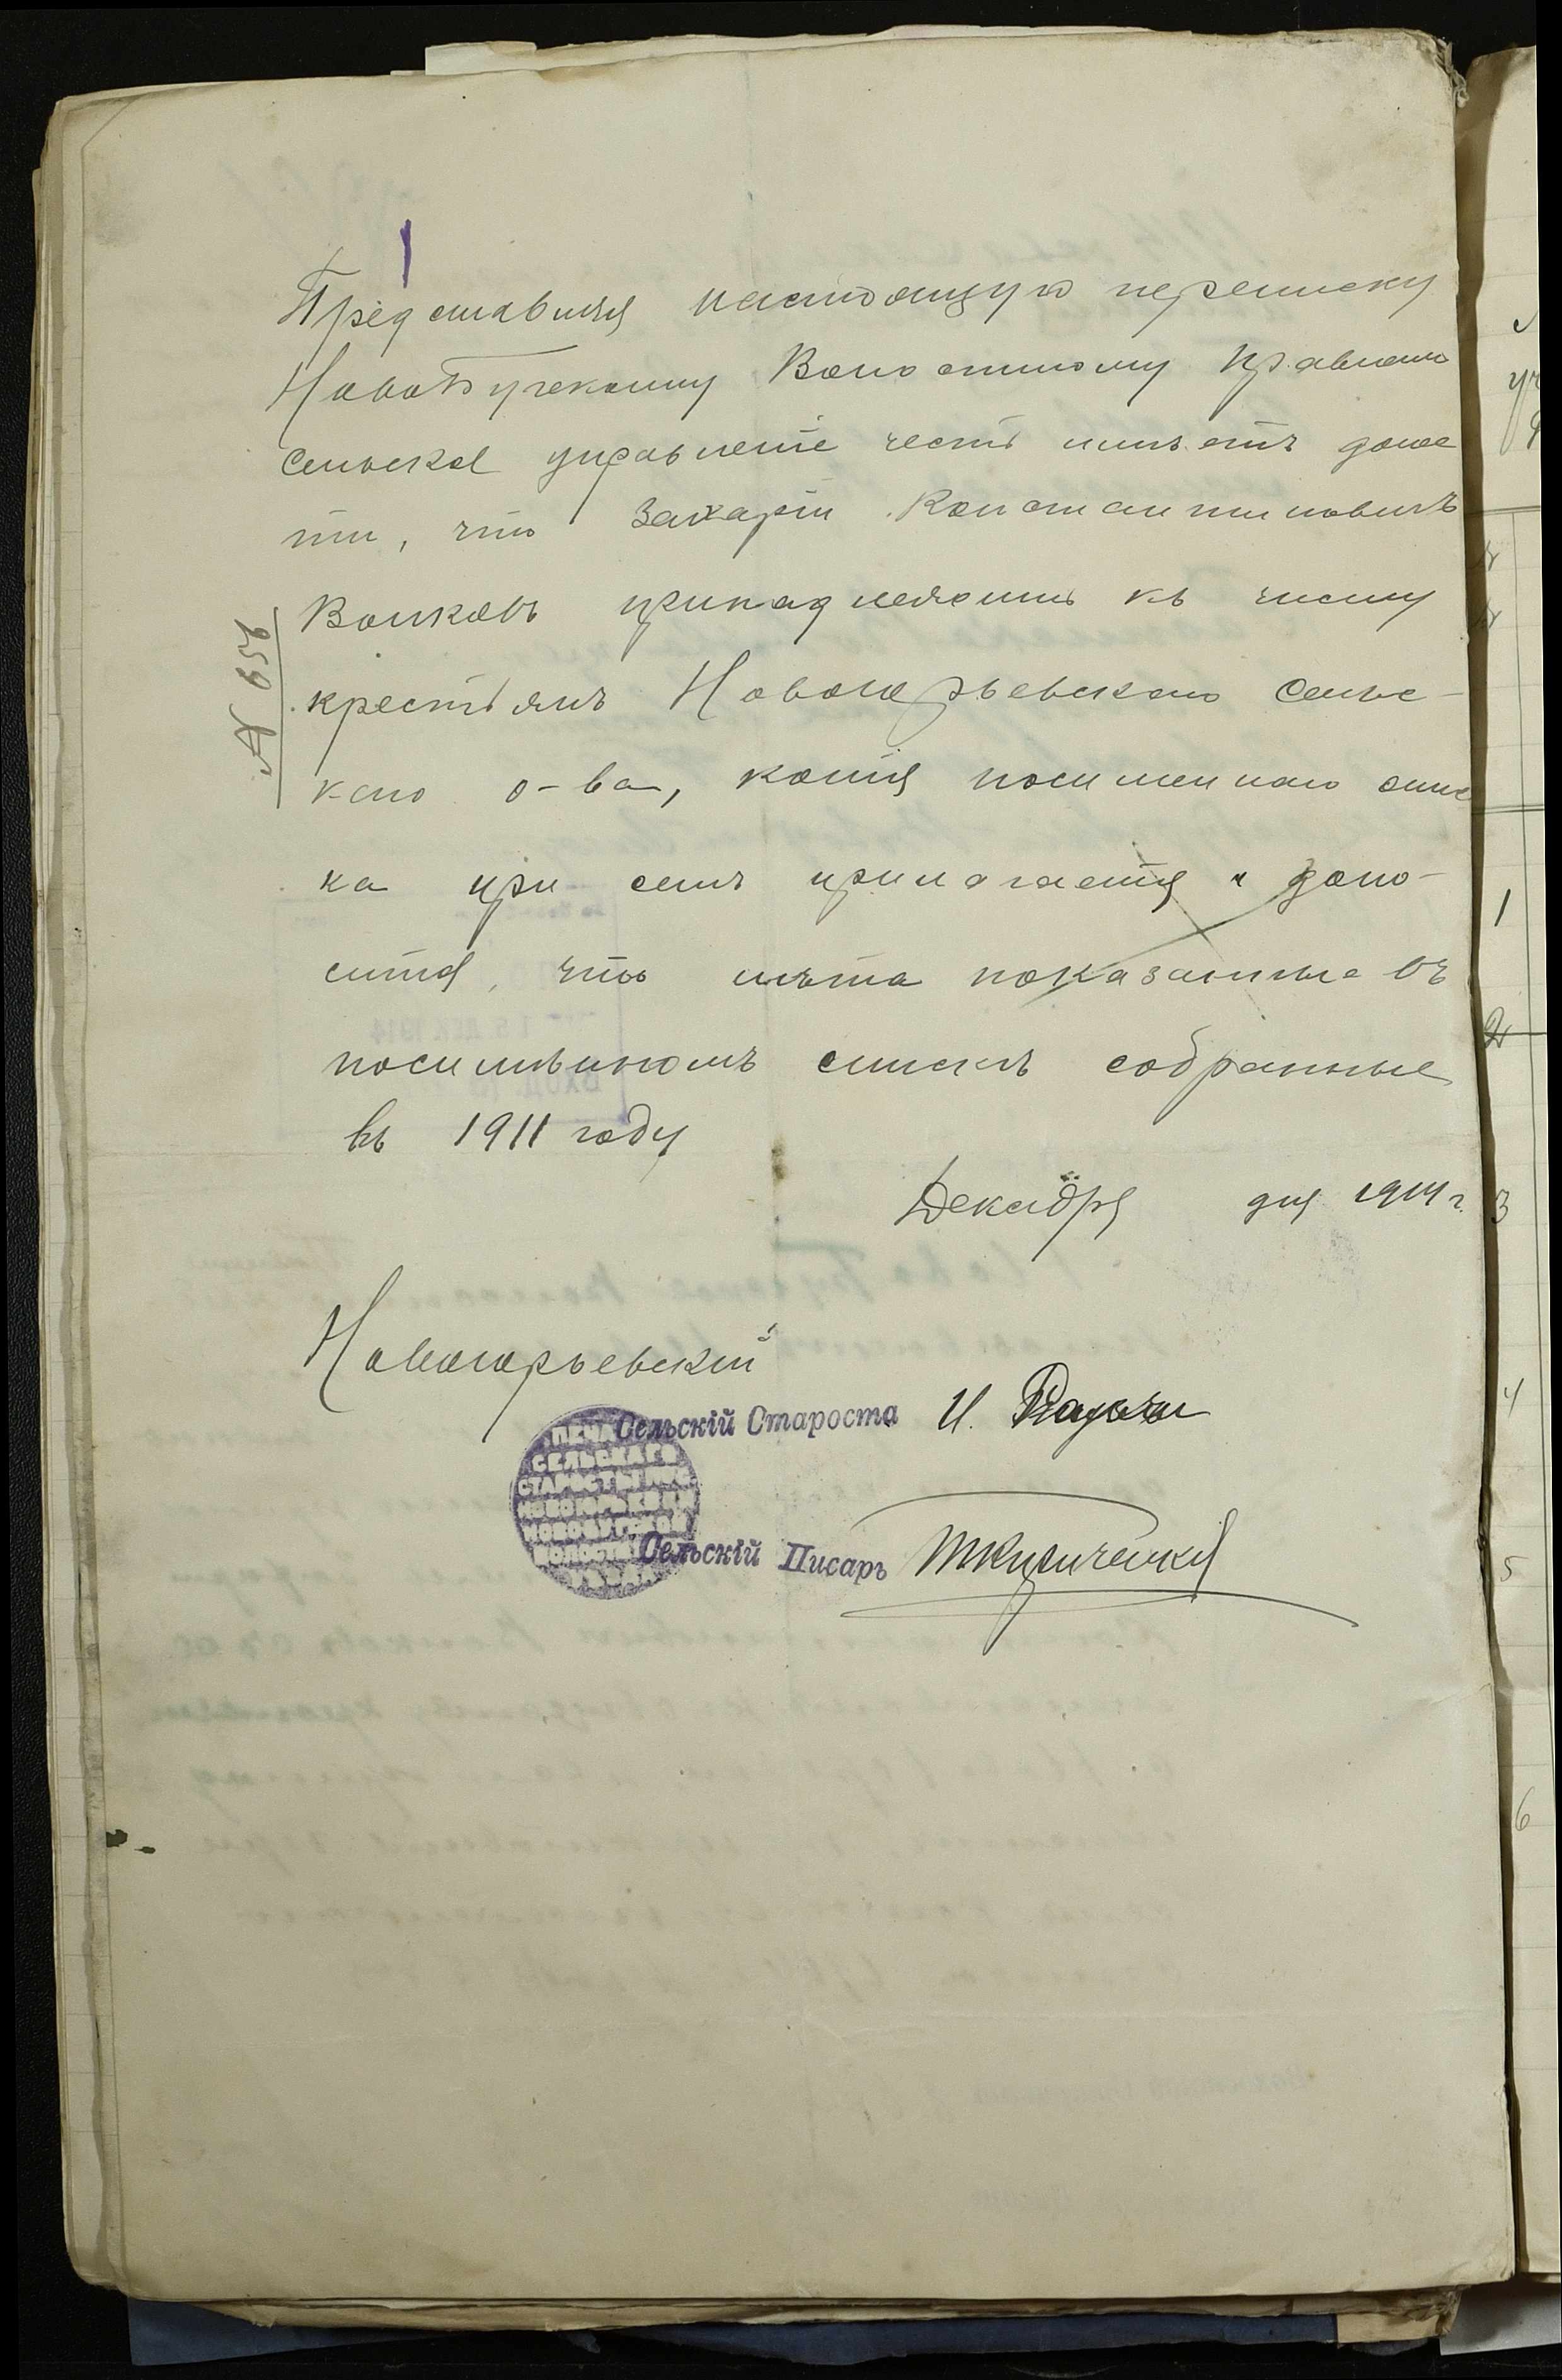 Представляя настоящую переписку
НовоБугскому Волостному Правлен
Сельское управленіе честь имѣетъ доне
ти, что Захарій Константиновичъ
Волковъ принадлежитъ къ числу
крестьянъ Новоюрьевскаго Сельс-
каго о-ва, копія посемейнаго спис
ка при семъ прилагается и доно-
сится, что лѣта показанные въ
посемѣйномъ спискѣ собранные
въ 1911 году
Декабря дня 1914 г.
№ 659
Новоюрьевскій
Сельскій Староста И.
Сельскій Писарь
ПЕЧА
СЕЛЬСКАГО
СТАРОСТЫ ПОС.
НОВОЮРЬЕВКИ
НОВОБУГСКОЙ
ВОЛОСТИ
1
2
3
4
5
6